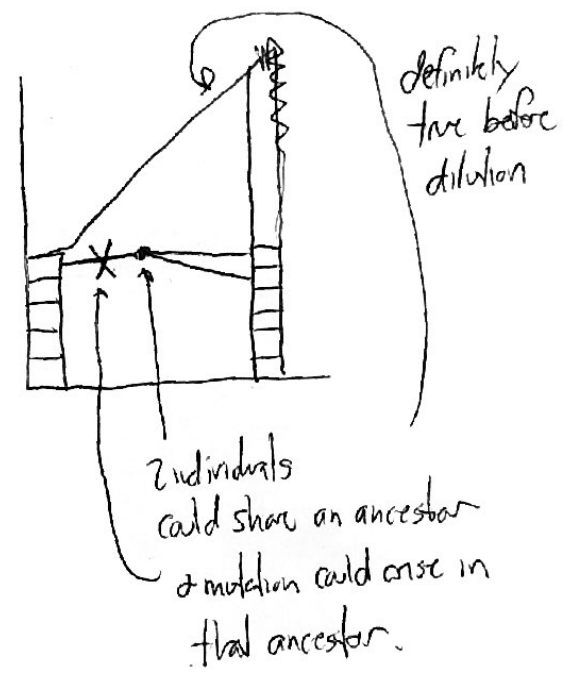 definitely
true before
dilution
2 individuals
could share an ancestor
& mutation could arise in
that ancestor.